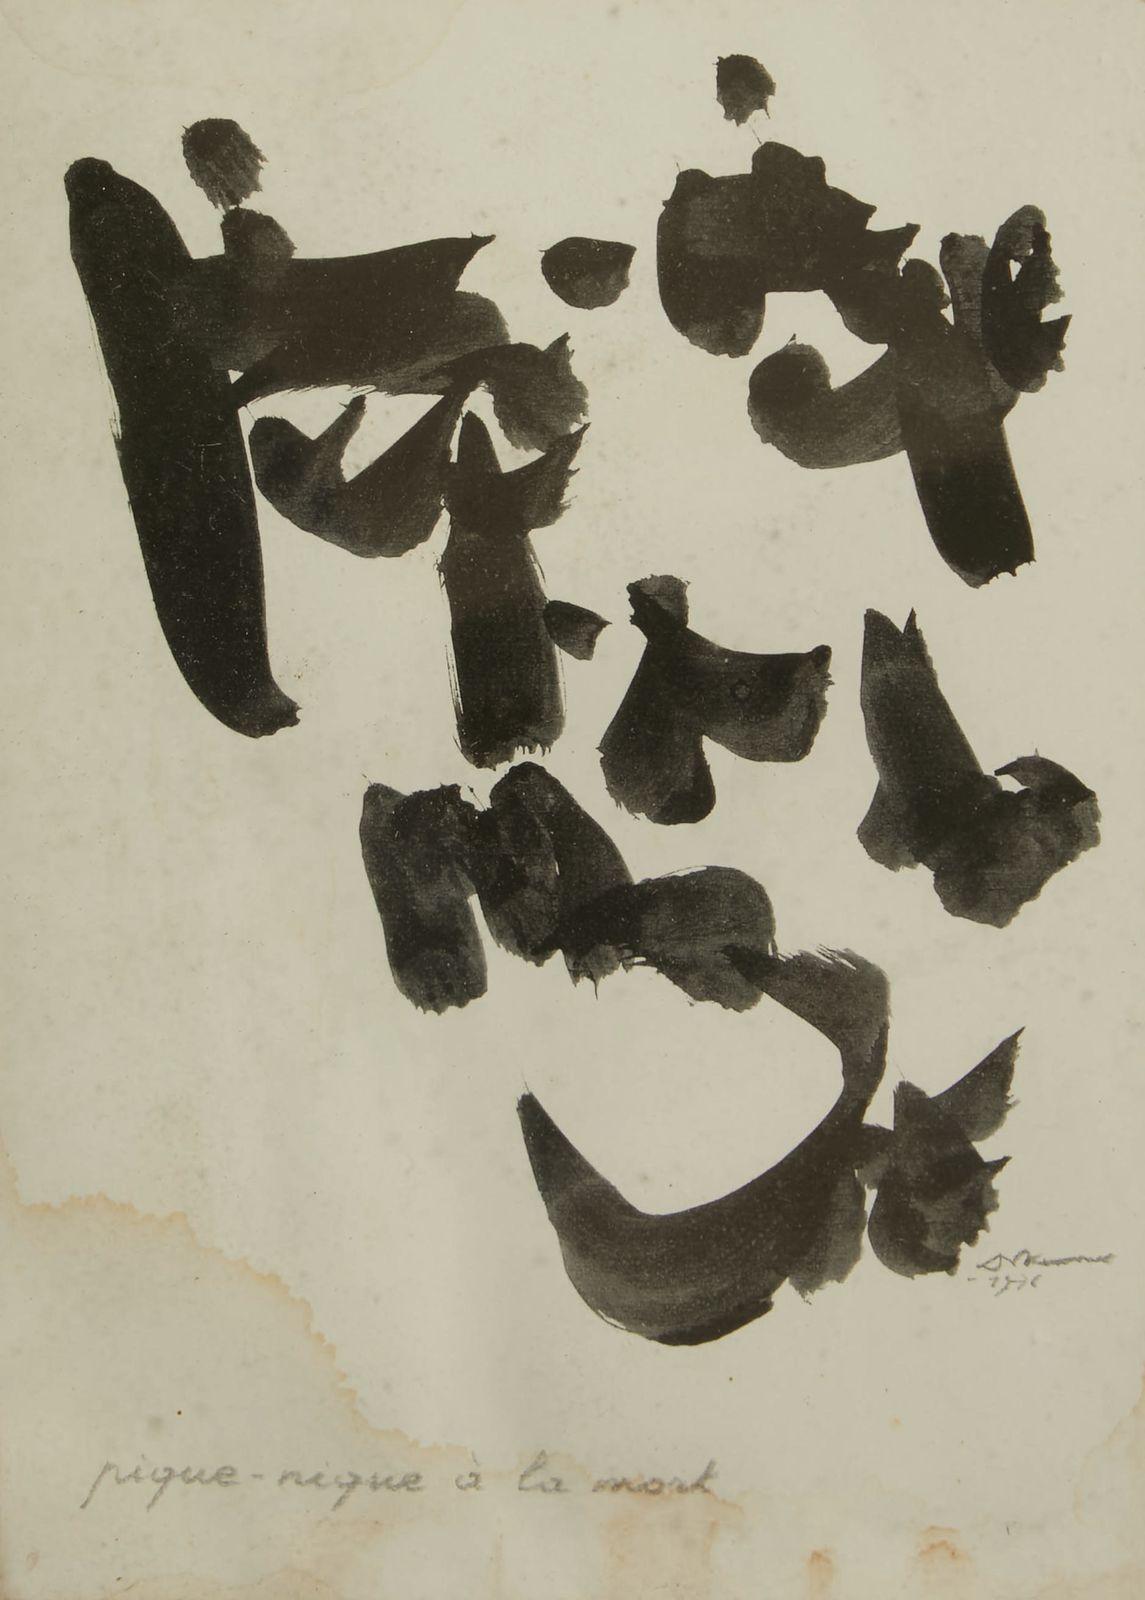 pique-nique à la mort